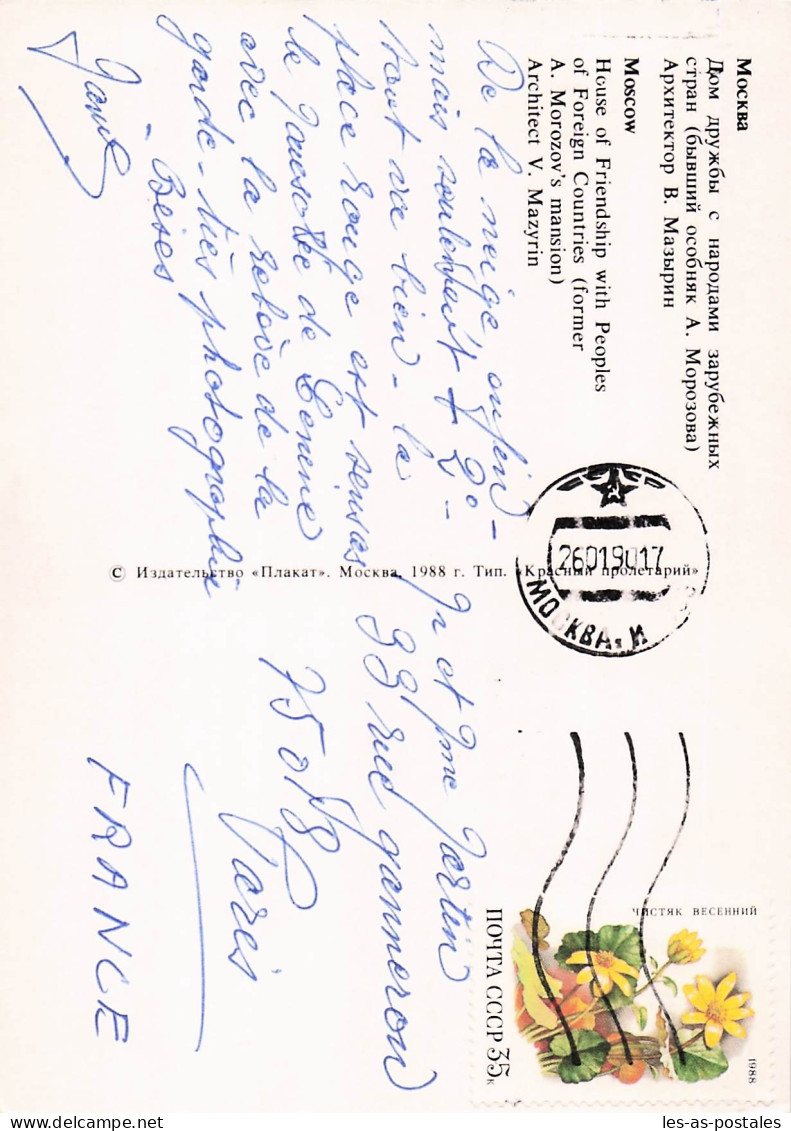 Москва
Дом дружбы с народами зарубежных
стран (бывший особняк А. Морозова)
Архитектор В. Мазырин
Moscow
House of Friendship with Peoples
of Foreign Countries (former
A. Morozov's mansion)
Architect V. Mazyrin
De la neige enfin -
mais seulement + 2° -
tout va bien - la
place rouge est
le de Lenine
avec la relève de la
garde - très
- Bises
© Издательство «Плакат». Москва, 1988 г. Тип. «Красный пролетарий»
26019017
МОСКВА
Mr et Mme Martin
33 rue ganneron
75018
Paris
FRANCE
ЧИСТЯК ВЕСЕННИЙ
ПОЧТА СССР 35к
1988
les-as-postales